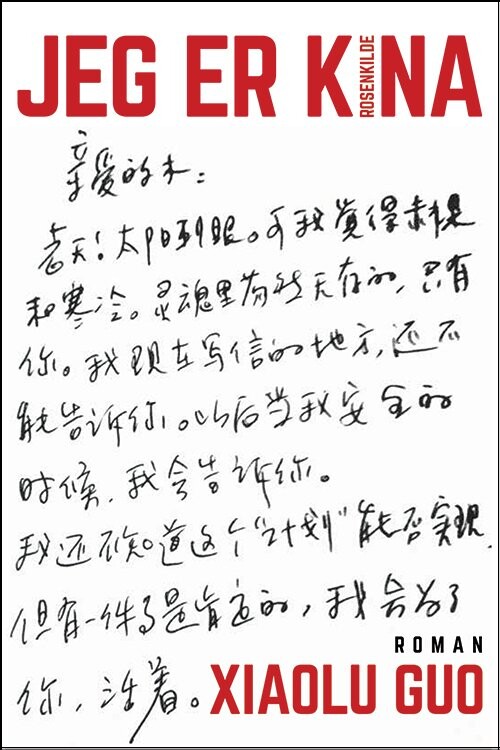 JEG ER KINA
ROSENKILDE
亲爱的木：
老天！太阳刺眼。可我覺得赤裸
和寒冷。灵魂里然无存的，只有
你。我现在写信的地方，还不
能告诉你。以后当我安全的
时候，我会告诉你。
我还不知道这个“计划”能否实现，
但有一件事是肯定的，我会为了
你，活着。
ROMAN
XIAOLU GUO